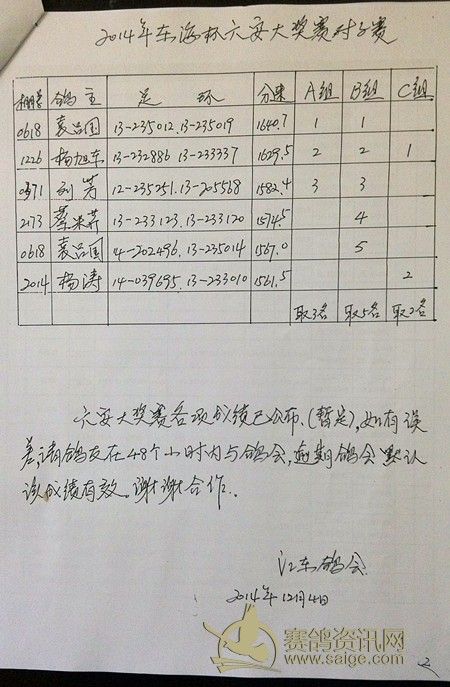 2014年东海杯六安大奖赛对子赛
棚号 鸽主 足环 分速 A组 B组 C组
0618 袁品国 13-235012.13-235019 1640.7 1 1
1226 杨旭东 13-232886 13-233337 1629.5 2 2 1
0371 刘芳 12-235251.13-205568 1582.4 3 3
2173 13-233123.13-233120 1574.5 4
0618 袁品国 14-202496.13-235014 1567.0 5
2014 杨涛 14-039695.13-233010 1561.5 2
取3名 取5名 取2名
六安大奖赛各项成绩已公布.(暂定),如有误
差,请鸽友在48个小时内与鸽会,逾期鸽会默认
该成绩有效。谢谢合作.
江东鸽会
2014年12月4日
赛鸽资讯网
www.saige.com
2